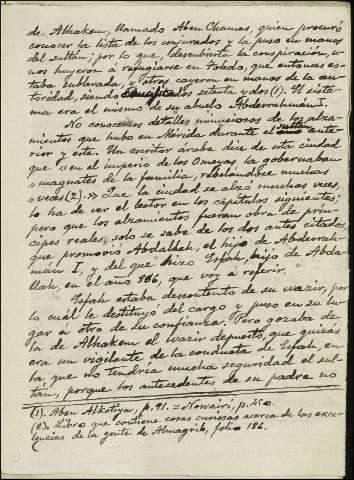 de Alhakem, llamado Aben Chamas, quien procuró
conocer la lista de los conjurados y la puso en manos
del sultán; por lo que, descubierta la conspiración, u-
nos huyeron a refugiarse en Toledo, que entonces es-
taba sublevada, y otros cayeron en manos de la au-
toridad, siendo crucificados setenta y dos (1). El siste-
ma era el mismo de su abuelo Abderrahman I.
No conocemos detalles minuciosos de los alza-
mientos que hubo en Mérida durante el sultán ante-
rior y éste. Un escritor árabe dice de esta ciudad
que «en el imperio de los Omeyas la gobernaban
» magnates de la familia, rebelándose muchas
» veces (2).» Que la ciudad se alzó muchas veces
lo ha de ver el lector en los capítulos siguientes;
pero que los alzamientos fueran obra de prín-
cipes reales, solo se sabe de los dos antes citados,
que promovió Abdallah, el hijo de Abderrah-
mán I, y del que hizo Esfah, hijo de Abda-
llah, en el año 386, que voy a referir.
Esfah estaba descontento de su wazir, por
lo cuál le destituyó del cargo y puso en su lu-
gar á otro de su confianza. Pero gozaba de
la de Alhakem el wazir depuesto, que quizás
era un vigilante de la conducta de Esfah, en
la que no tendría mucha seguridad el sul-
tán, porque los antecedentes de su padre no
(1). Aben Alkotiya, p. 91. = Nowairí, p. 450.
(2). Libro que contiene cosas curiosas acerca de las exce-
lencias de la gente de Almagrib, folio 186.